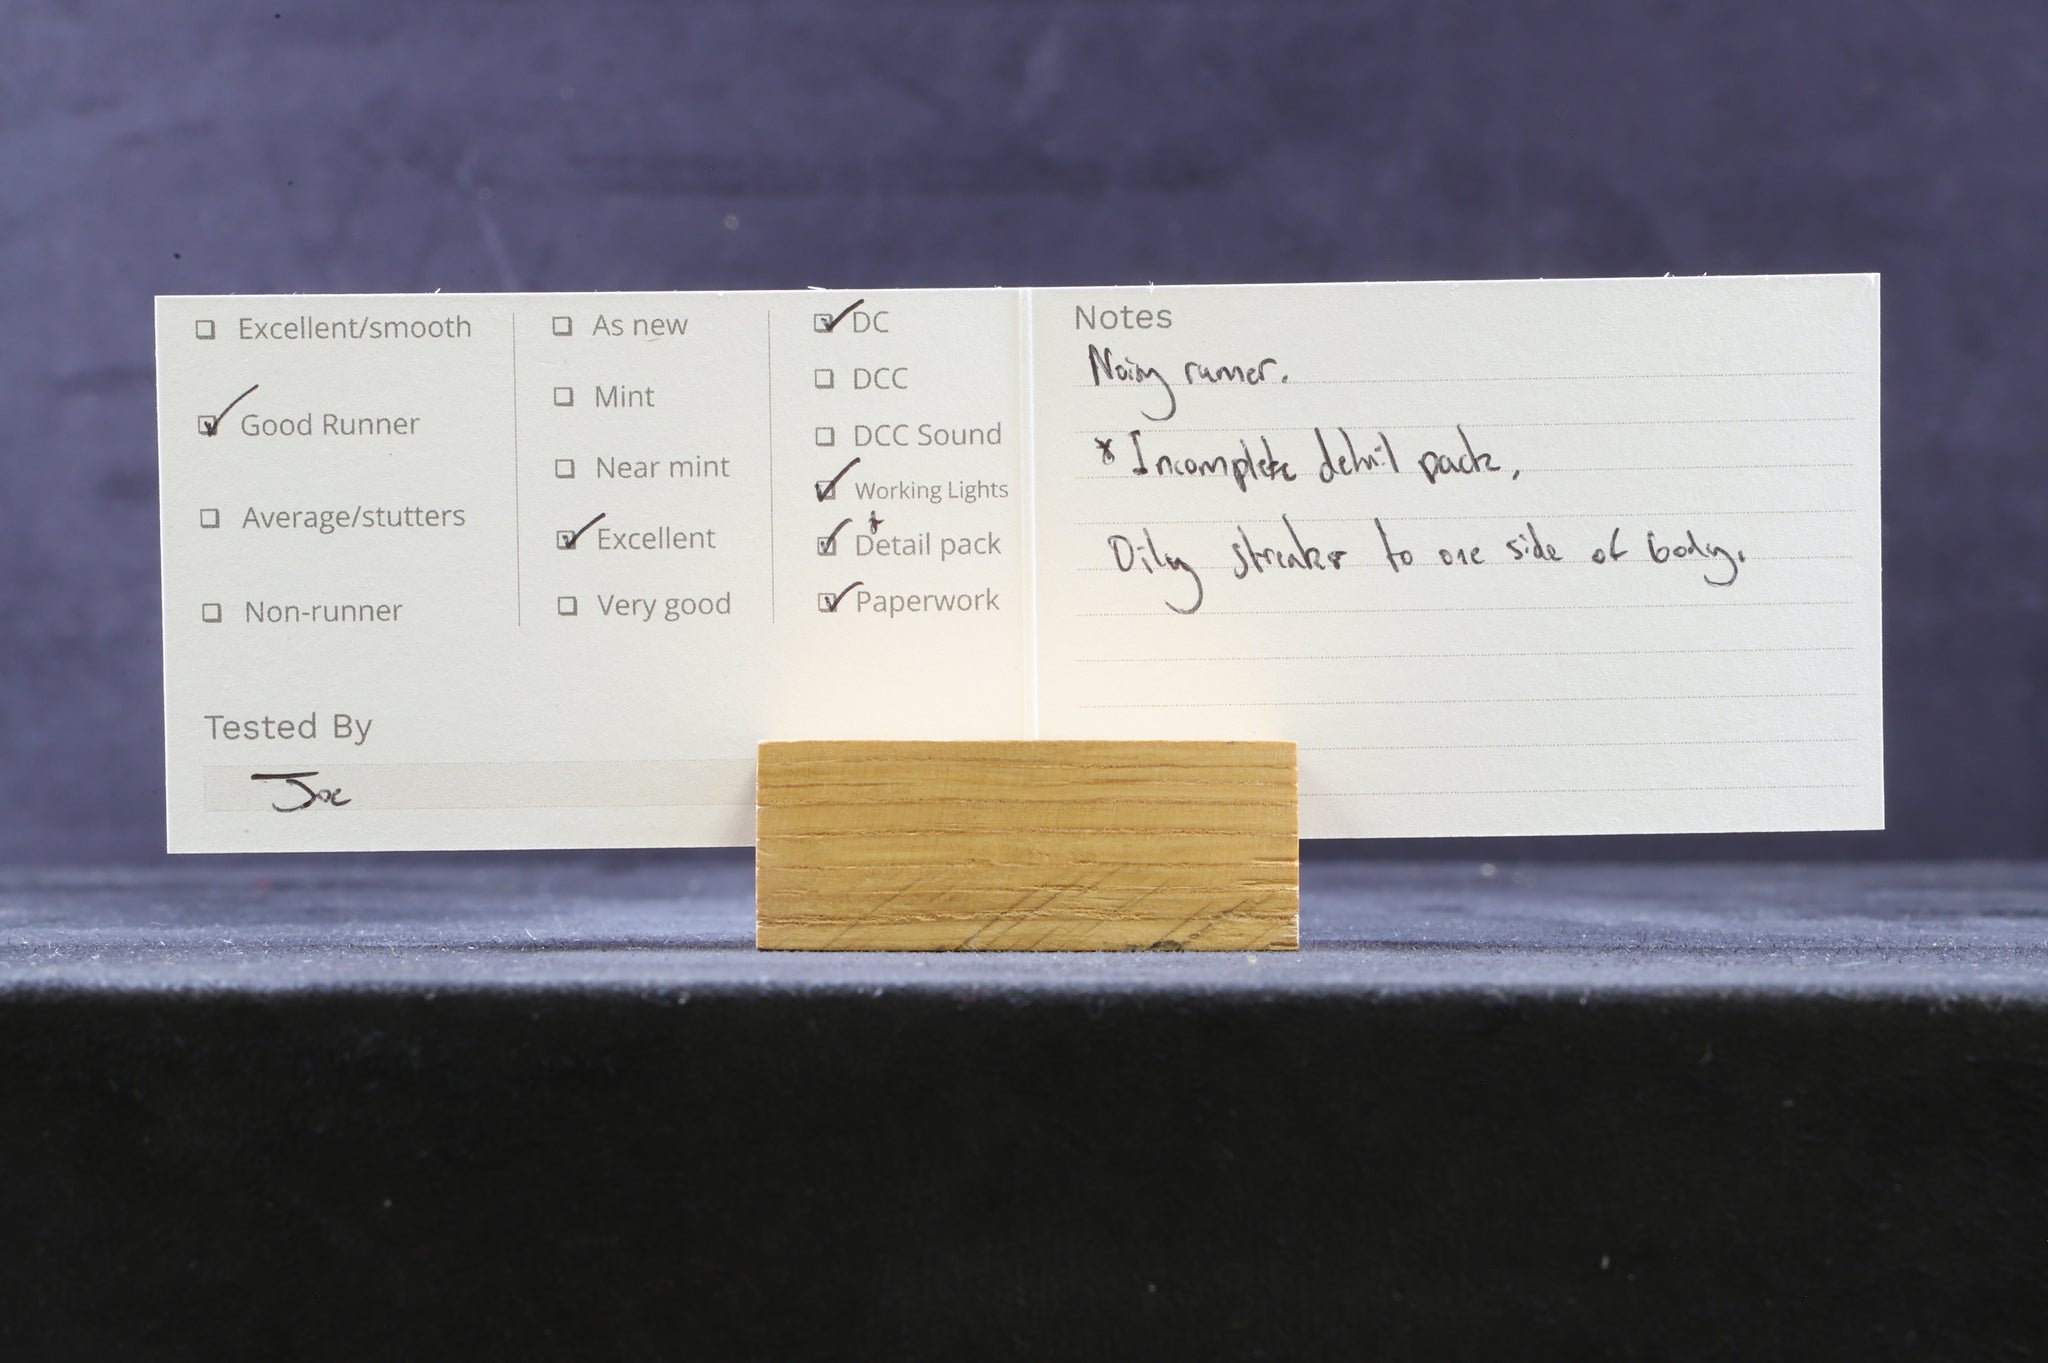 Excellent/smooth
Good Runner
Average/stutters
Non-runner
As new
Mint
Near mint
Excellent
Very good
DC
DCC
DCC Sound
Working Lights
*
Detail pack
Paperwork
Tested By
Joe
Notes
Noisy runner.
* Incomplete detail pack.
Oily streaks to one side of body.